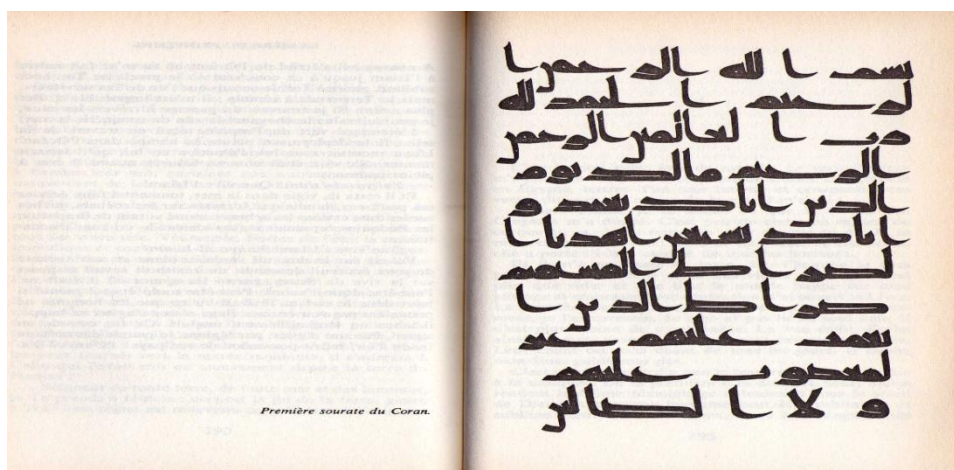 Première sourate du Coran.
بسم ا لله الرحمن ا
لرحيم ا لحمد لله
رب ا لعالمين الرحمن
الرحيم مالك يوم
الدين اياك نعبد و
اياك نستعين اهدنا ا
لصراط المستقيم
صراط الذين ا
نعمت عليهم غير
لمغضوب عليهم
و لا ا لضالين